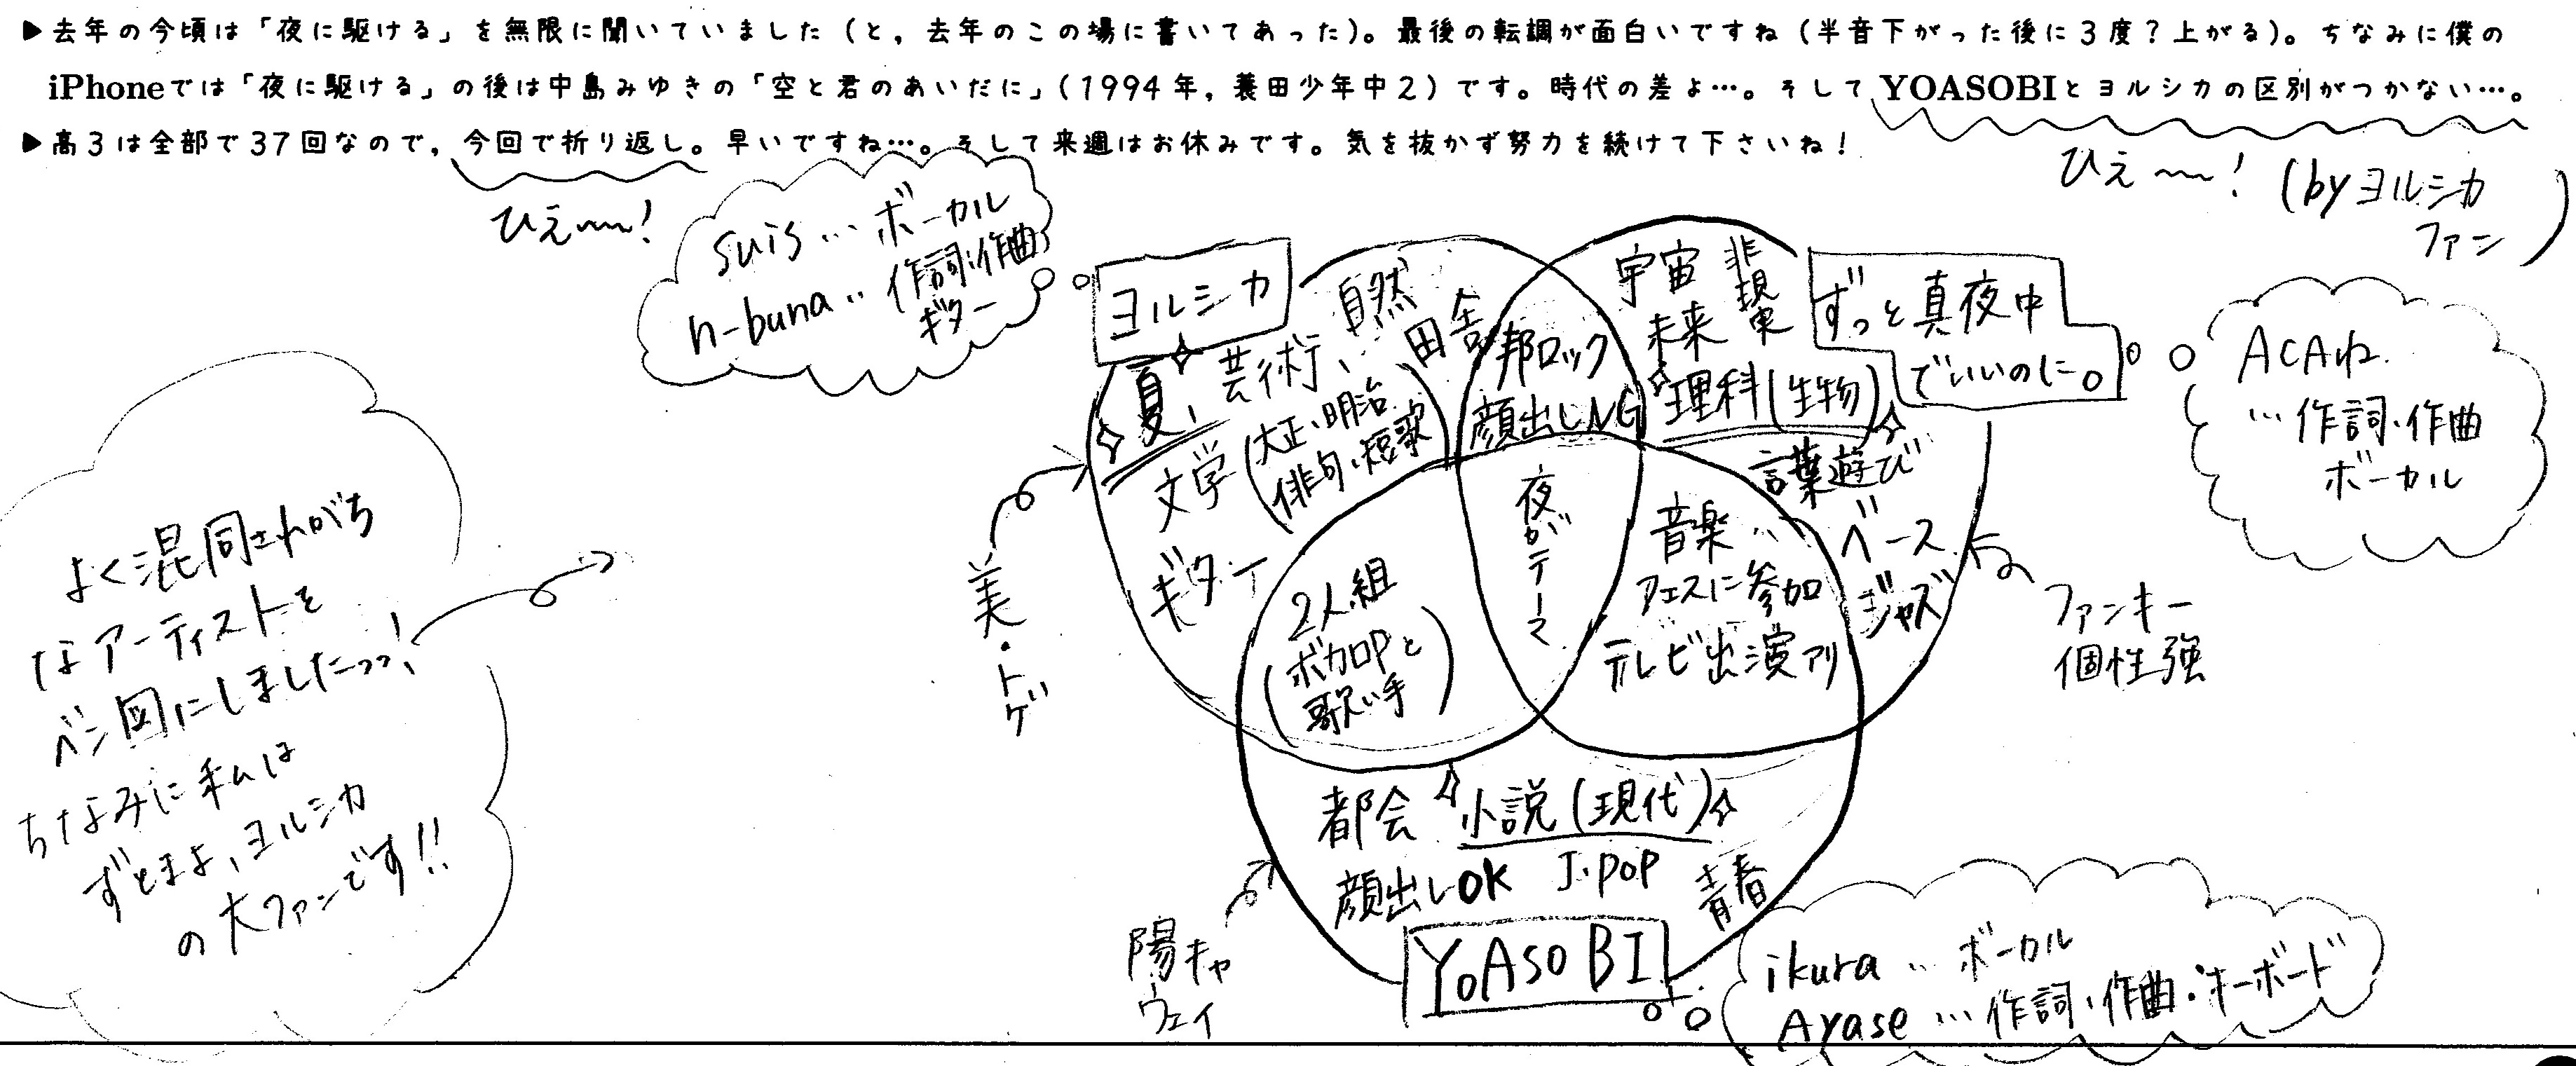 ▶去年の今頃は「夜に駆ける」を無限に聞いていました（と，去年のこの場に書いてあった）。最後の転調が面白いですね（半音下がった後に3度？上がる）。ちなみに僕の
iPhoneでは「夜に駆ける」の後は中島みゆきの「空と君のあいだに」（1994年，養田少年中2）です。時代の差よ…。そしてYOASOBIとヨルシカの区別がつかない…。
▶高3は全部で37回なので，今回で折り返し。早いですね…。そして来週はお休みです。気を抜かず努力を続けて下さいね！
ひえ〜〜！
ひえ〜〜！（byヨルシカ
ファン）
suis…ボーカル
n-buna…作詞・作曲
ギター
ヨルシカ
夏、芸術、自然
田舎
文学（大正・明治
俳句・短歌）
ギター
美・トゲ
邦ロック
顔出しNG
宇宙 非現実
未来
理科（生物）
言葉遊び
ベース
ジャズ
ずっと真夜中
でいいのに。
ACAね
…作詞・作曲
ボーカル
ファンキー
個性強
夜がテーマ
音楽
フェスに参加
テレビ出演アリ
2人組
（ボカロPと
歌い手）
都会 小説（現代）
顔出しOK J-POP 青春
YOASOBI
陽キャ
ウェイ
ikura…ボーカル
Ayase…作詞・作曲・キーボード
よく混同されがち
なアーティストを
ベン図にしましたっっ！
ちなみに私は
ずとまよ、ヨルシカ
の大ファンです!!